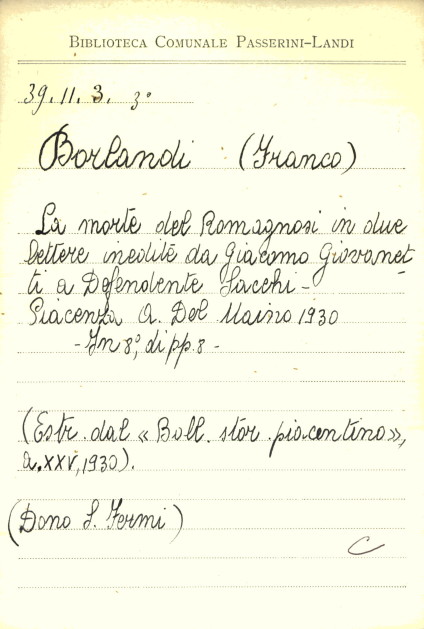 BIBLIOTECA COMUNALE PASSERINI-LANDI
39.11.3. 3°
Borlandi (Franco)
La morte del Romagnosi in due
lettere inedite da Giacomo Giovanet-
ti a Defendente Sacchi -
Piacenza A. Del Maino 1930
- In 8°, di pp. 8 -
(Estr. dal « Boll. stor. piacentino »,
a. XXV, 1930).
(Dono S. Fermi)
C